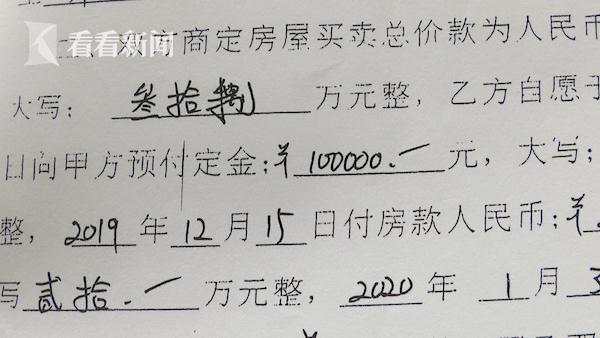 看看新闻
二、双方商定房屋买卖总价款为人民币
大写: 叁拾捌 万元整, 乙方自愿于
日向甲方预付定金:¥ 100000.- 元, 大写;
整, 2019 年 12 月 15 日付房款人民币;¥
写 贰拾.- 万元整, 2020 年 1 月